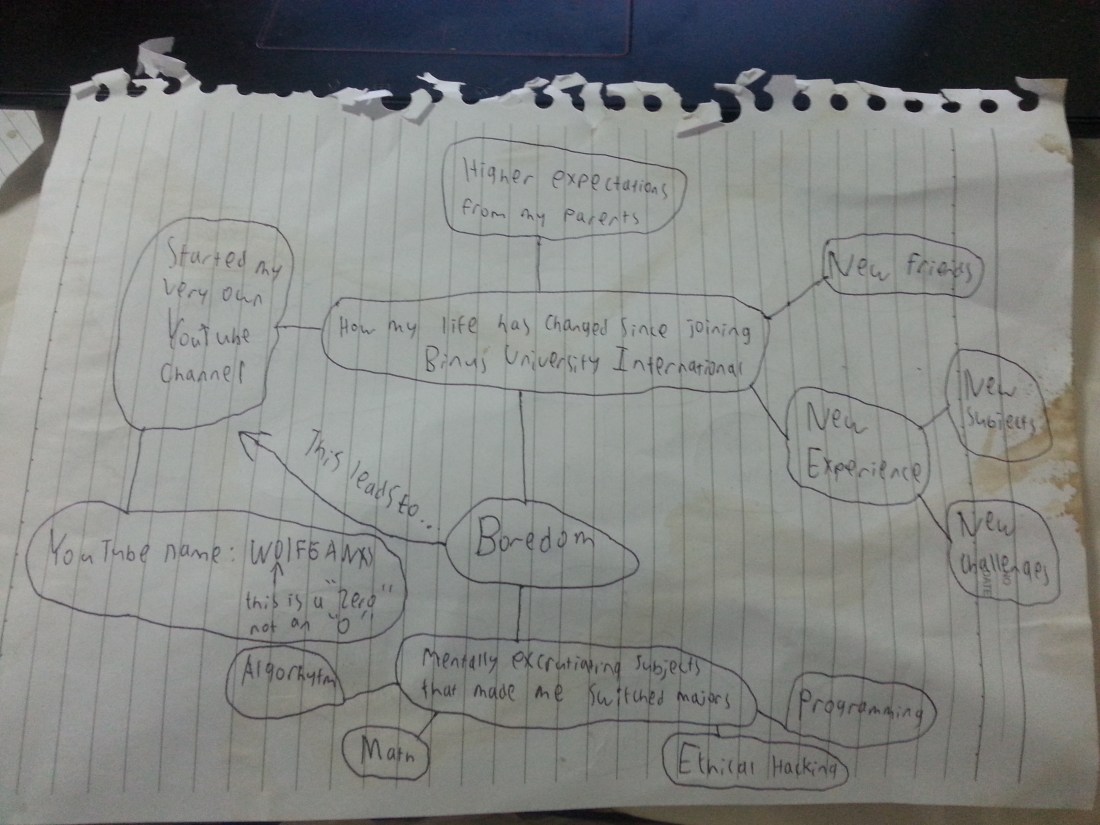 Higher expectations
from my parents
Started my
very own
YouTube
channel
How my life has changed since joining
Binus University International
New friends
New
Experience
New
Subjects
New
challenges
NO
DATE
This leads to...
Boredom
YouTube name:
this is a "zero"
not an "O"
Mentally excrutiating subjects
that made me switched majors
Algorhytm
Math
Ethical Hacking
Programming